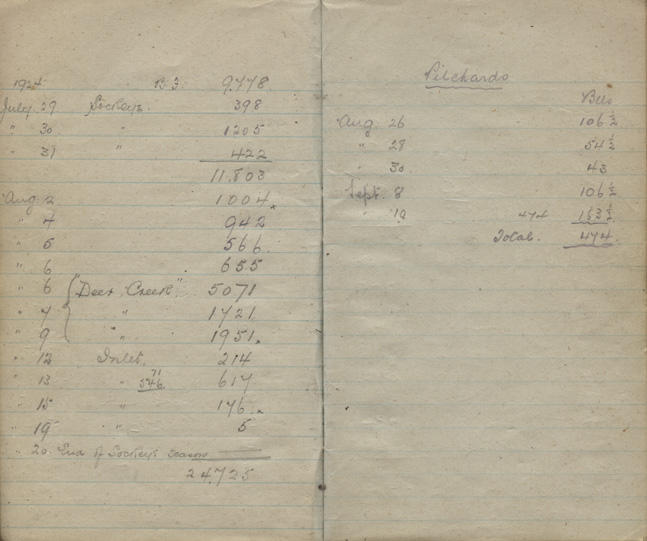 1924 9778
July 29 Sockeye. 398
" 30 " 1205
" 31 " 422
11.803
Aug 2 1004
" 4 942
" 5 566
" 6 655
" 6 "Deer Creek" 5071
" 7 " 1721
" 9 " 1951
" 12 Inlet. 214
71
" 13 " 546 617
" 15 " 176
" 19 " 5
" 20 End of Sockeye season
24,725
Pilchards
Bls
Aug. 26 106½
" 28 54½
" 30 43
Sept. 8 106½
" 19 474 163½
Total. 474